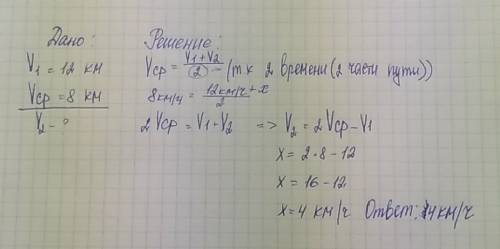 Дано:
V₁ = 12 км
Vср = 8 км
V₂ - ?
Решение:
Vср = (V₁+V₂)/2 - (т к 2 времени (2 части пути))
8км/ч = (12км/ч + x)/2
2Vср = V₁ + V₂ => V₂ = 2Vср - V₁
x = 2·8 - 12
x = 16 - 12
x = 4 км/ч Ответ: 4км/ч